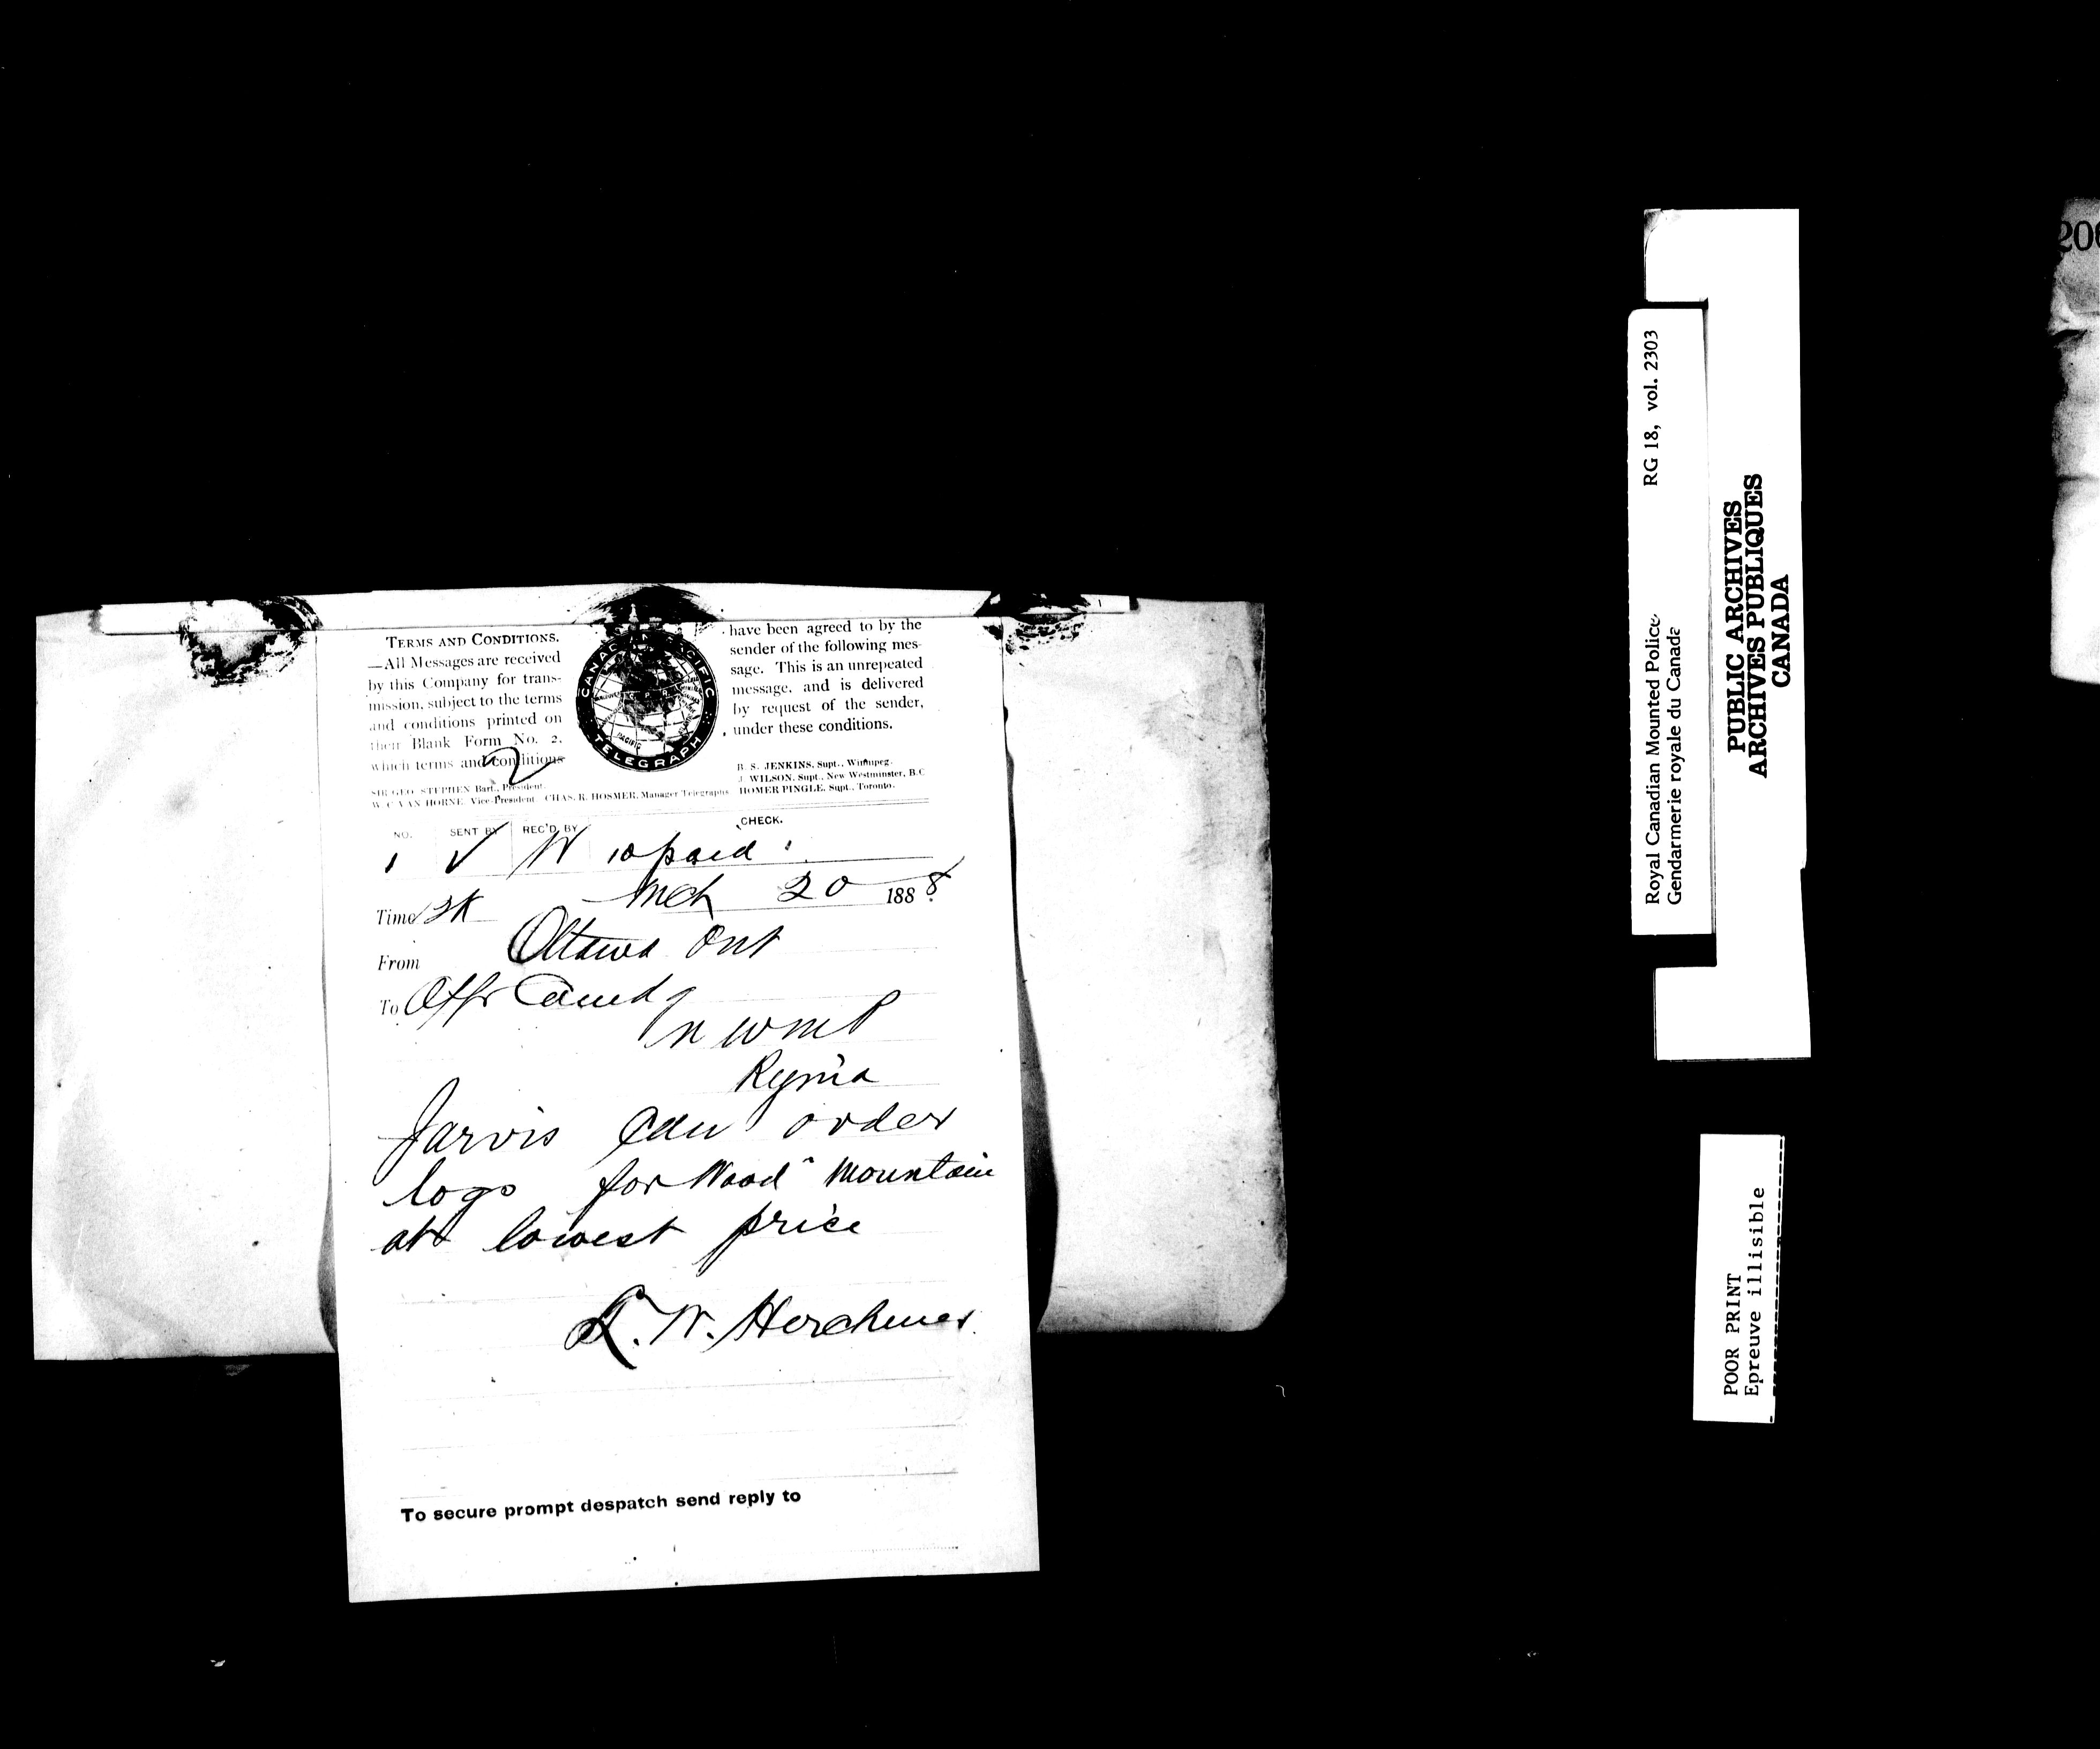 TERMS AND CONDITIONS.
—All Messages are received
by this Company for trans-
mission, subject to the terms
and conditions printed on
their Blank Form No. 2.
which terms and conditions
CANADIAN PACIFIC
TELEGRAPH
C. P. R.
PACIFIC
have been agreed to by the
sender of the following mes-
sage. This is an unrepeated
message, and is delivered
by request of the sender,
under these conditions.
2
SIR GEO. STEPHEN Bart., President.
W. C. VAN HORNE, Vice-President. CHAS. R. HOSMER, Manager Telegraphs
B. S. JENKINS, Supt., Winnipeg.
J. WILSON, Supt., New Westminster, B.C
HOMER PINGLE, Supt., Toronto.
NO. SENT BY REC'D BY CHECK.
1 W 10 paid
Time 2K Mch 20 1888
From Ottawa Ont
To Offr Comdg
N W M P
Regina
Jarvis can order
logs for Wood Mountain
at lowest price
L. W. Herchmer.
To secure prompt despatch send reply to
Royal Canadian Mounted Police RG 18, vol. 2303
Gendarmerie royale du Canada
PUBLIC ARCHIVES
ARCHIVES PUBLIQUES
CANADA
POOR PRINT
Epreuve illisible
200